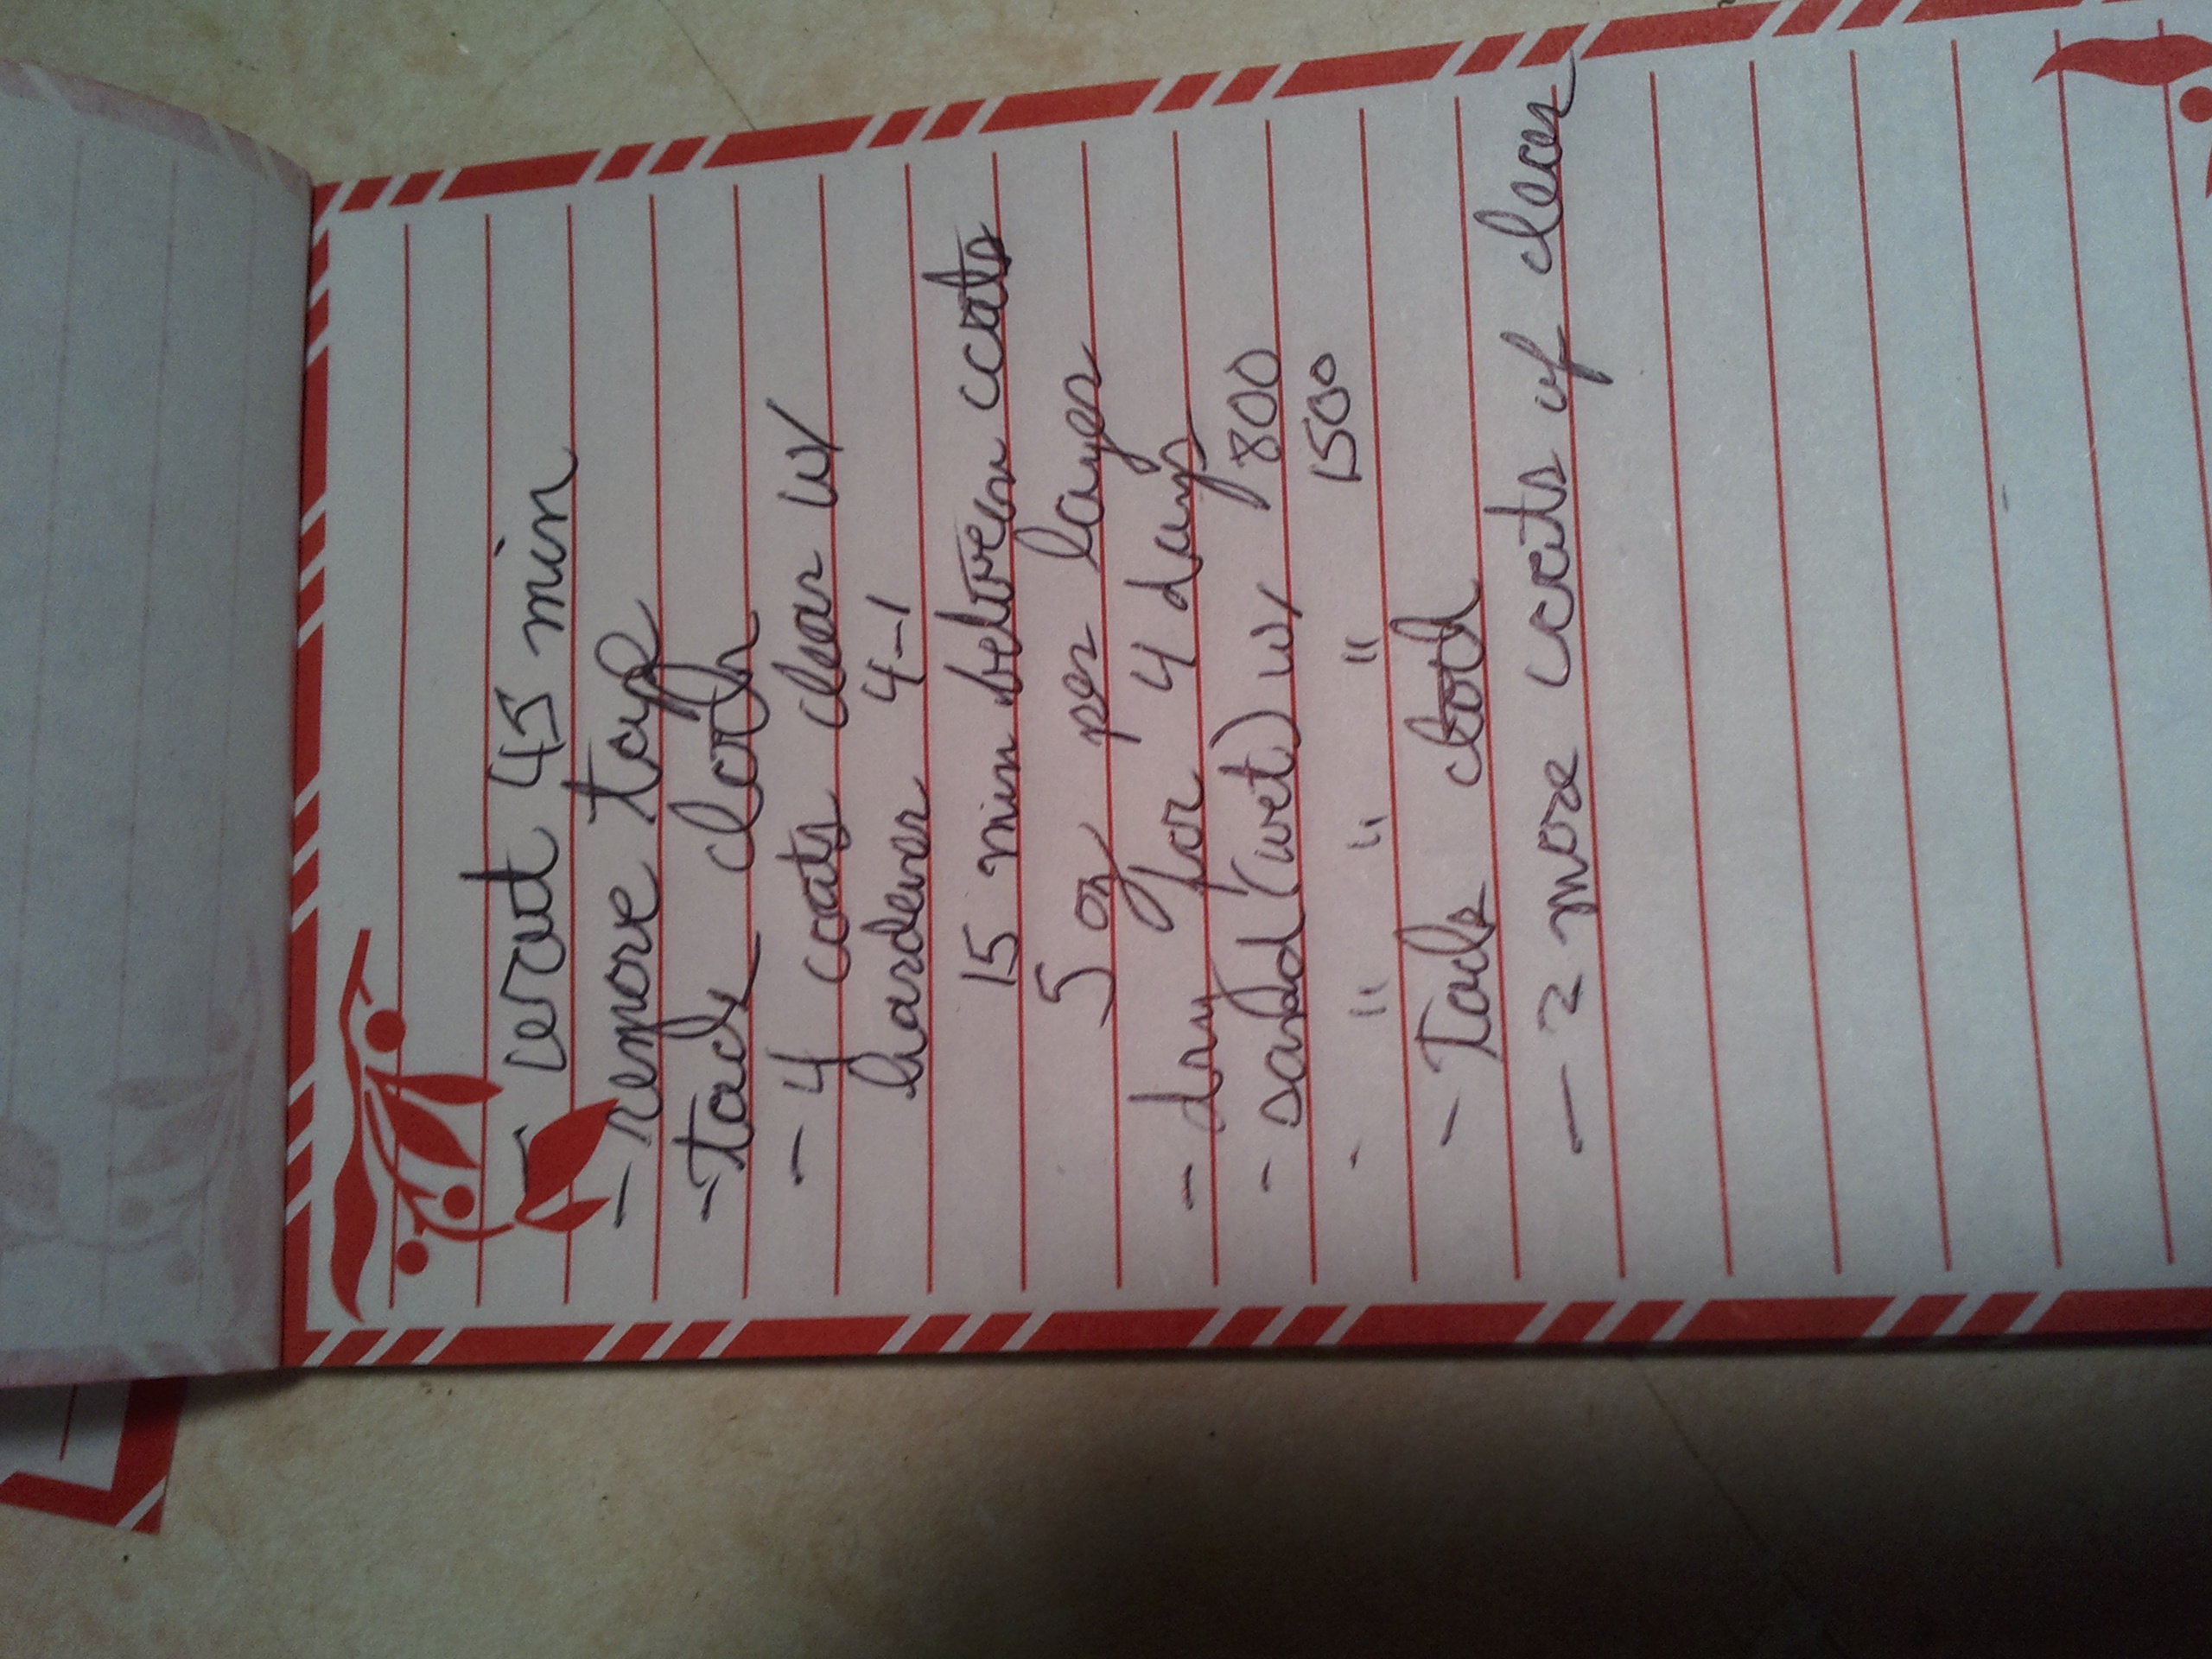 - wait 45 min
- remove tape
- tack cloth
- 4 coats clear w/
hardener 4-1
15 min between coats
5 oz per layer
- dry for 4 days
- sand (wet) w/ 800
- " " " 1500
- Tack cloth
- 2 more coats of clear